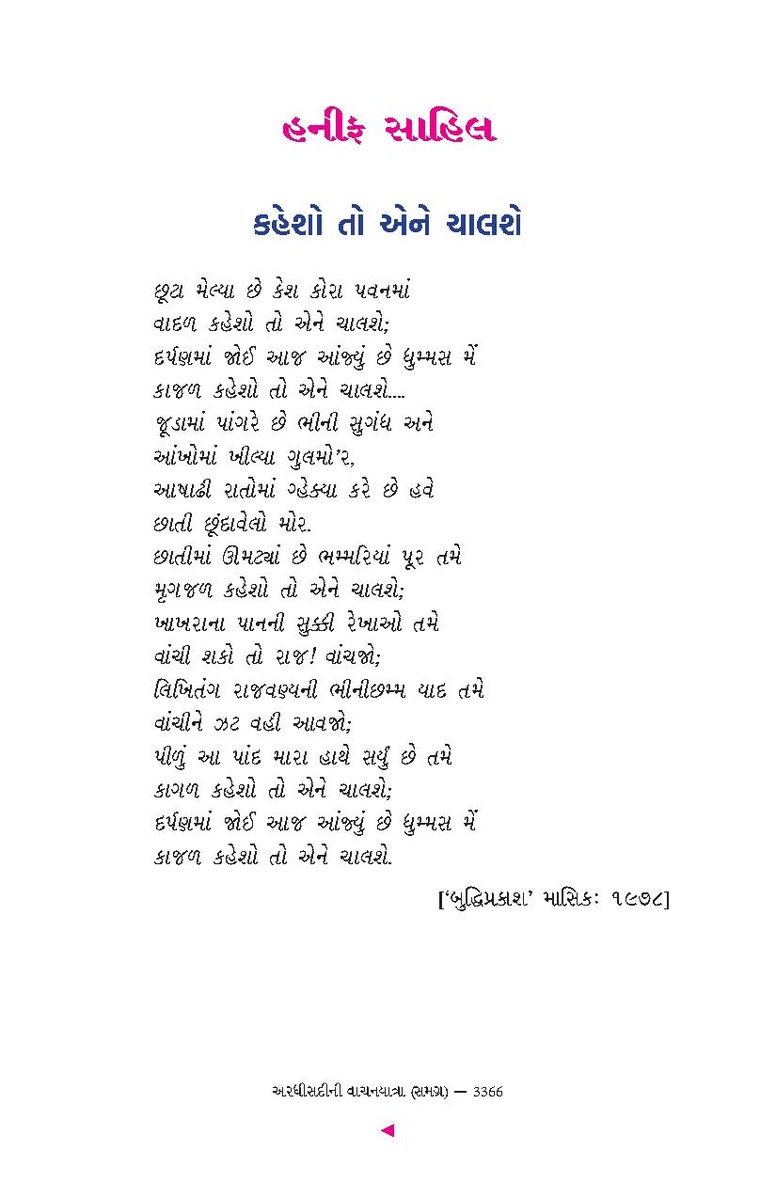 હનીફ સાહિલ
કહેશો તો એને ચાલશે
છૂટા મેલ્યા છે કેશ કોરા પવનમાં
વાદળ કહેશો તો એને ચાલશે;
દર્પણમાં જોઈ આજ આંજ્યું છે ધુમ્મસ મેં
કાજળ કહેશો તો એને ચાલશે....
જૂડામાં પાંગરે છે ભીની સુગંધ અને
આંખોમાં ખીલ્યા ગુલમો’ર,
આષાઢી રાતોમાં ગ્હેક્યા કરે છે હવે
છાતી છૂંદાવેલો મોર.
છાતીમાં ઊમટ્યાં છે ભમ્મરિયાં પૂર તમે
મૃગજળ કહેશો તો એને ચાલશે;
ખાખરાના પાનની સુક્કી રેખાઓ તમે
વાંચી શકો તો રાજ! વાંચજો;
લિખિતંગ રાજવણ્યની ભીનીછમ્મ યાદ તમે
વાંચીને ઝટ વહી આવજો;
પીળું આ પાંદ મારા હાથે સર્યું છે તમે
કાગળ કહેશો તો એને ચાલશે;
દર્પણમાં જોઈ આજ આંજ્યું છે ધુમ્મસ મેં
કાજળ કહેશો તો એને ચાલશે.
[‘બુદ્ધિપ્રકાશ’ માસિકઃ ૧૯૭૮]
અરધીસદીની વાચનયાત્રા (સમગ્ર) — 3366